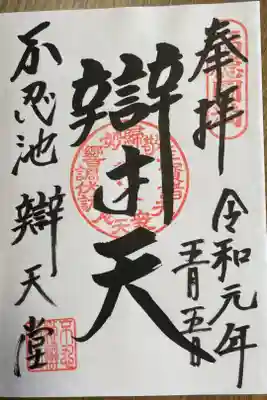 奉拝
令和元年
五月五日
辯才天
不忍池 辯天堂